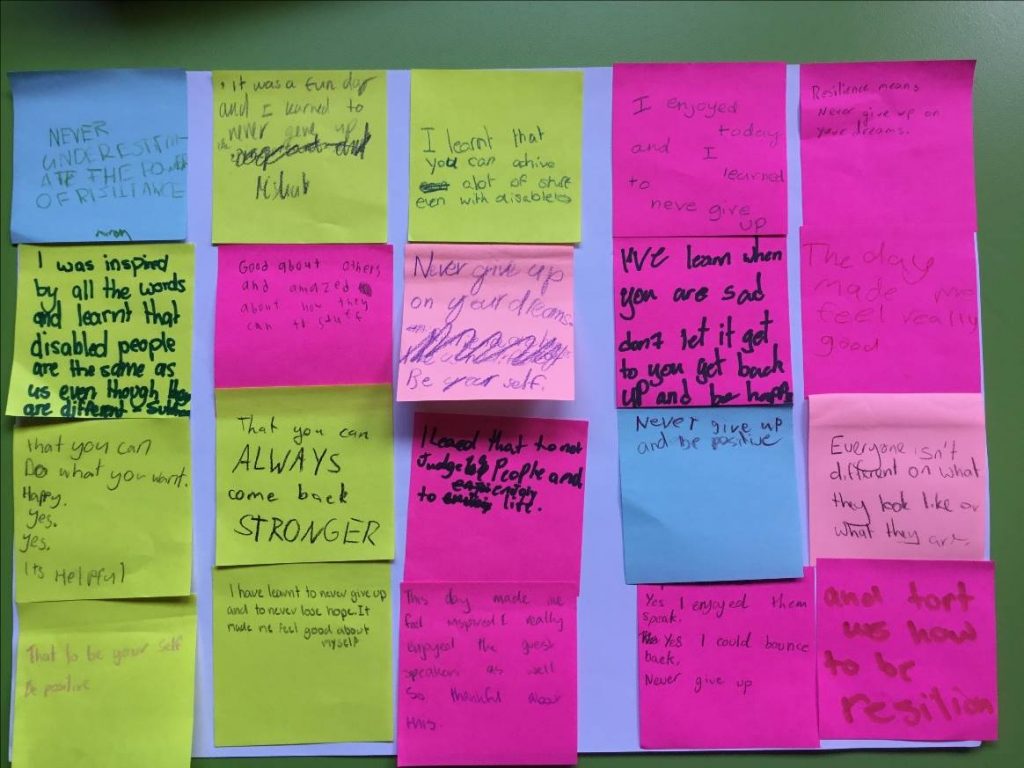 NEVER
UNDERESTIM-
ATE THE POWER
OF RISILIANCE
It was a fun day
and I learned to
never give up
I learnt that
you can achive
alot of stuff
even with disableles
I enjoyed
today
and I
learned
to
neve give
up
Resilience means
Never give up on
your dreams.
I was inspired
by all the words
and learnt that
disabled people
are the same as
us even though they
are different
Good about others
and amazed
about how they
can do stuff
Never give up
on your dreams.
Be your self.
I'VE learn when
you are sad
don't let it get
to you get back
UP and be happy
The day
made me
feel really
good
That you can
Do what you want.
Happy.
Yes.
Yes.
Its Helpful
That you can
ALWAYS
come back
STRONGER
I Leaed that to not
Judge People and
to life.
Never give up
and be positive
Everyone isn't
different on what
they look like or
what they are.
That to be your self
Be positive
I have learnt to never give up
and to never lose hope. It
made me feel good about
myself
This day made me
feel inspired I really
enjoyed the guest
speakers as well
So thankful about
this.
Yes I enjoyed them
speak.
Yes I could bounce
back.
Never give up
and tort
us how
to be
resilion